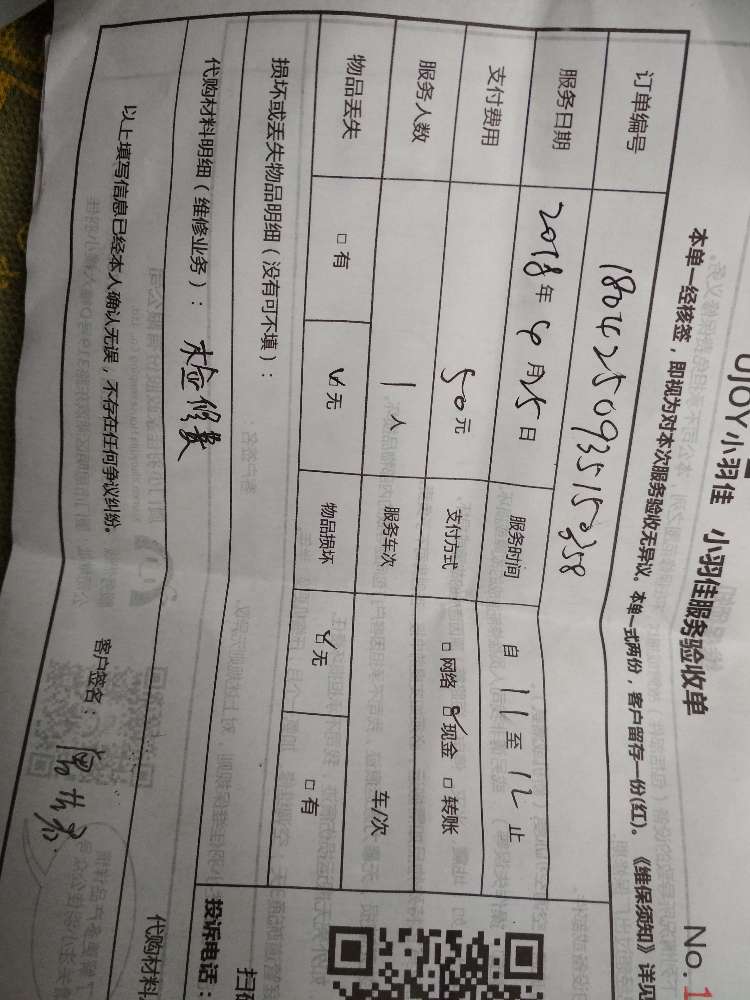 UJOY小羽佳 小羽佳服务验收单
No.1
本单一经核签，即视为对本次服务验收无异议。本单一式两份，客户留存一份(红)。《维保须知》详见
订单编号 1804250935150358
服务日期 2018年4月25日 服务时间 自11至12止
支付费用 50元 支付方式 □网络 ☑现金 □转账
服务人数 1人 服务车次 车/次
物品丢失 □有 ☑无 物品损坏 ☑无 □有
损坏或丢失物品明细（没有可不填）：
代购材料明细（维修业务）： 检修费
以上填写信息已经本人确认无误，不存在任何争议纠纷。 客户签名：
扫
投诉电话：
代购材料